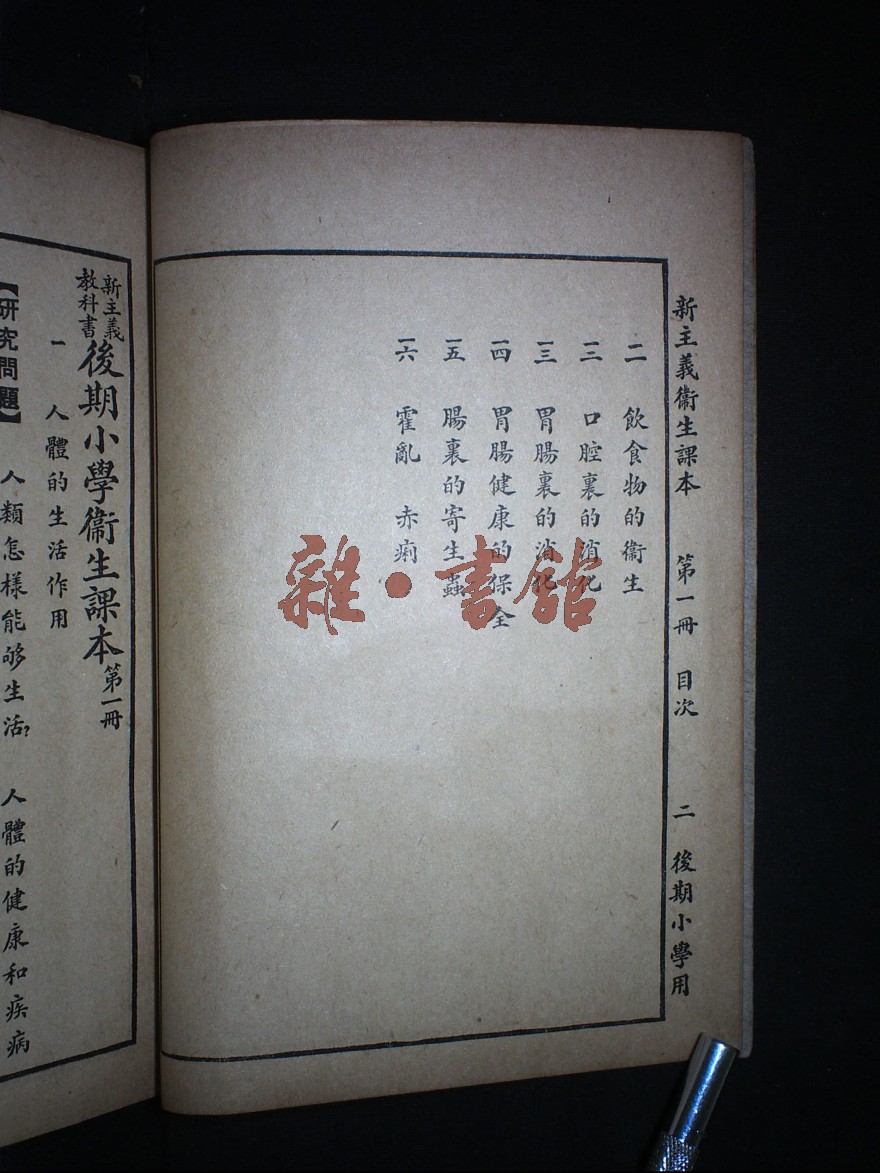 新主義衞生課本 第一冊 目次 二 後期小學用
一一 飲食物的衞生
一二 口腔裏的消化
一三 胃腸裏的消化
一四 胃腸健康的保全
一五 腸裏的寄生蟲
一六 霍亂 赤痢
新主義教科書 後期小學衞生課本 第一冊
一 人體的生活作用
【研究問題】 人類怎樣能够生活? 人體的健康和疾病
雜·書館